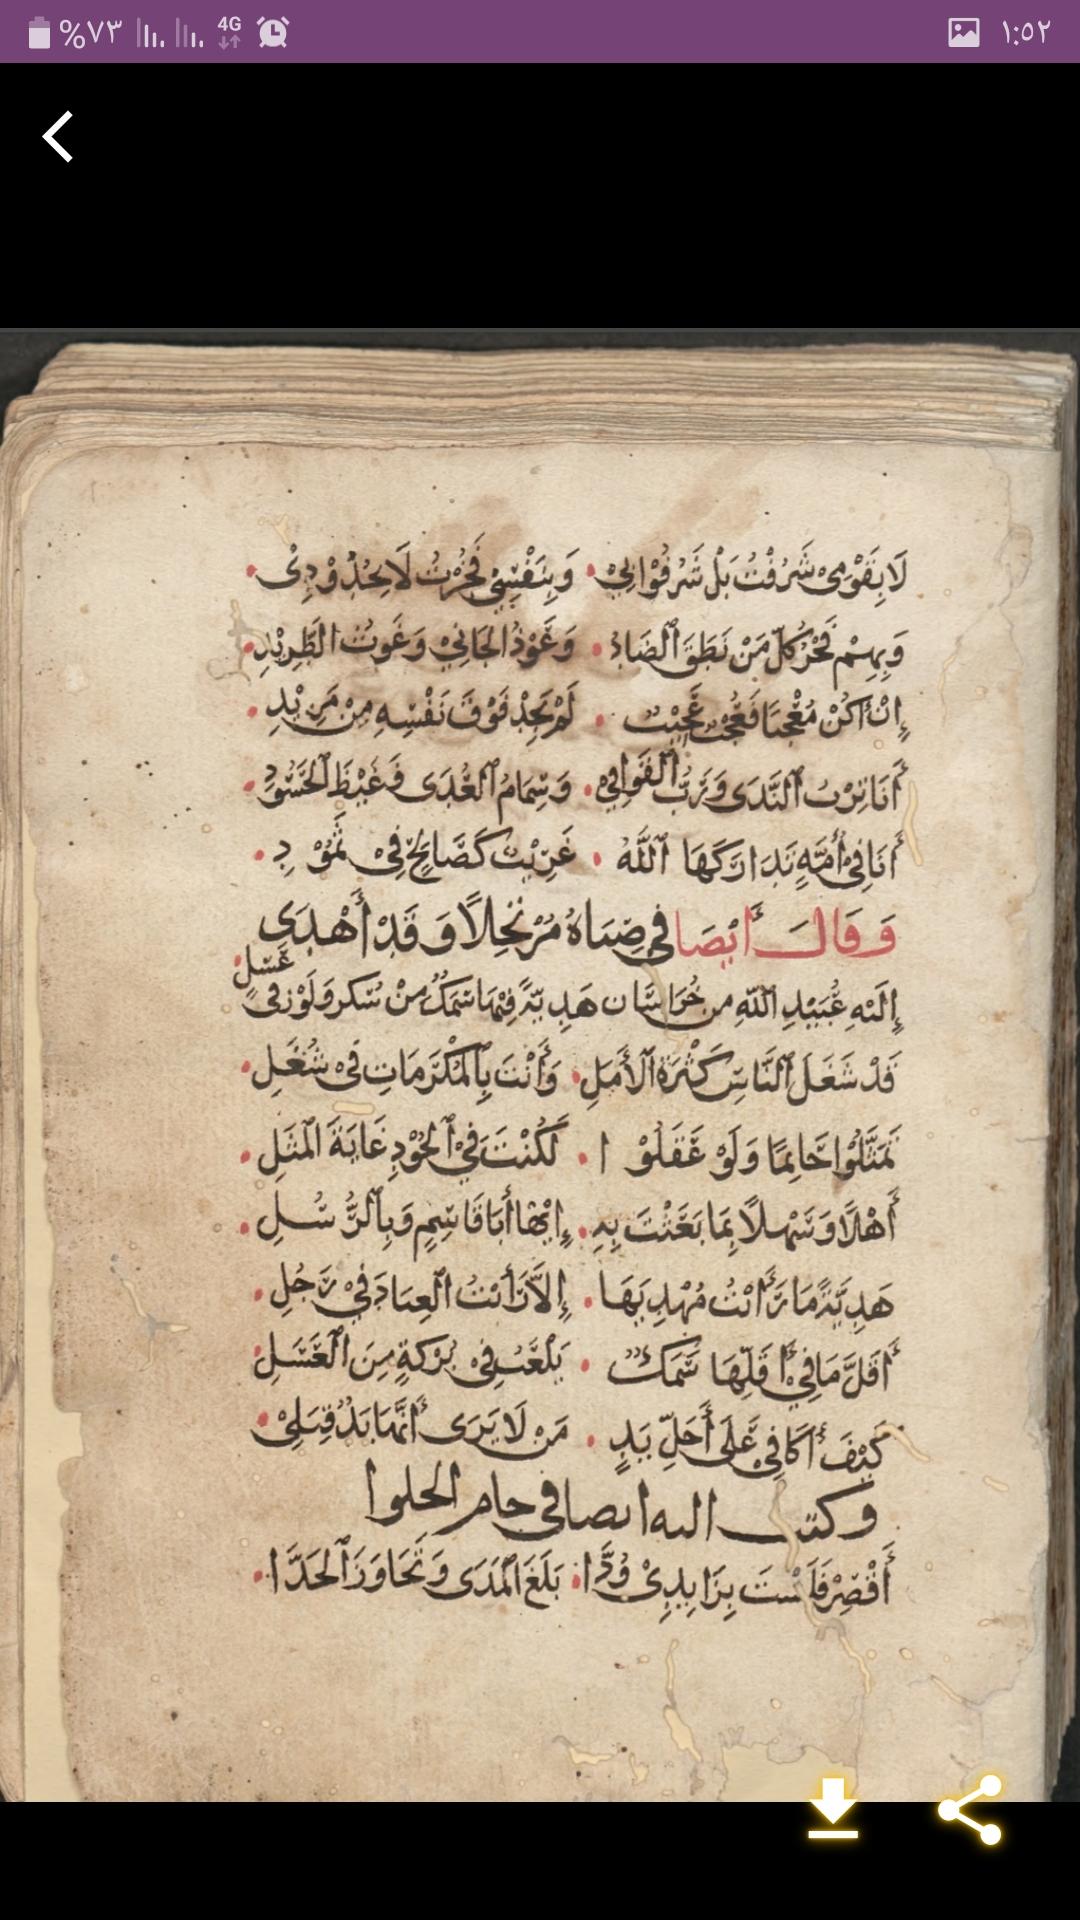 %٧٣ 4G ١:٥٢
لَا بِقَوْمِى شَرُفْتُ بَلْ شَرُفُوا بِىْ وَبِنَفْسِىْ فَخَرْتُ لَا بِجُدُوْدِىْ
وَبِهِمْ فَخْرُ كُلِّ مَنْ نَطَقَ ٱلضَادَ وَعَوْذُ الجَانِيْ وَغَوثُ الطَّرِيْدِ
إِنْ أَكُنْ مُعْجِبًا فَعُجْبُ عَجِيْبٍ لَمْ يَجِدْ فَوْقَ نَفْسِهِ مِنْ مَزِيْدِ
أَنَا تِرْبُ ٱلنَّدَى وَرَبُّ ٱلقَوَافِيْ وَسِمَامُ ٱلعُدَى وَغَيْظُ ٱلحَسُوْدِ
أَنَا فِىْ أُمَّةٍ تَدَارَكَهَا ٱللَّهُ غَرِيْبٌ كَصَالِحٍ فِىْ ثَمُوْدِ
وَقَالَ أَيْضًا فِى صِبَاهُ مُرْتَجِلًا وَقَدْ أَهْدَى
إِلَيْهِ عُبَيْدِ ٱللّٰهِ من خُرَاسَان هَدِيَّةً فِيْهَا سَمَكٌ مِنْ سُكَّر وَلَوْز فِىْ عَسَلٍ
قَدْ شَغَلَ ٱلنَّاسَ كَثْرَةُ ٱلأَمَلِ وَأَنْتَ بِٱلمَكْرَمَاتِ فِىْ شُغُلِ
تَمَثَّلُوْا حَاتِمًا وَلَوْ عَقَلُوْ ا لَكُنْتَ فِيْ ٱلجُوْدِ غَايَةَ ٱلمَثَلِ
أَهْلًا وَسَهْلًا بِمَا بَعَثْتَ بِهِ إِيْهًا أَبَا قَاسِمٍ وَبِٱلرُّسُلِ
هَدِيَّةً مَا رَأَيْتُ مُهْدِيَهَا إِلَّا رَأَيْتُ ٱلعِبَادَ فِيْ رَجُلِ
أَقَلُّ مَا فِيْ أَقَلِّهَا سَمَكٌ يَلْعَبُ فِى بُرْكَةٍ مِنَ ٱلعَسَلِ
كَيْفَ أُكَافِى عَلَى أَجَلِّ يَدٍ مَنْ لَا يَرَى أَنَّهَا يَدٌ قِبَلِىْ
وكتب اليه ايضا فى جام الحلوا
أَقْصِرْ فَلَسْتَ بِزَايِدِيْ وُدًّا بَلَغَ ٱلمَدَى وَتَجَاوَزَ ٱلحَدَّا